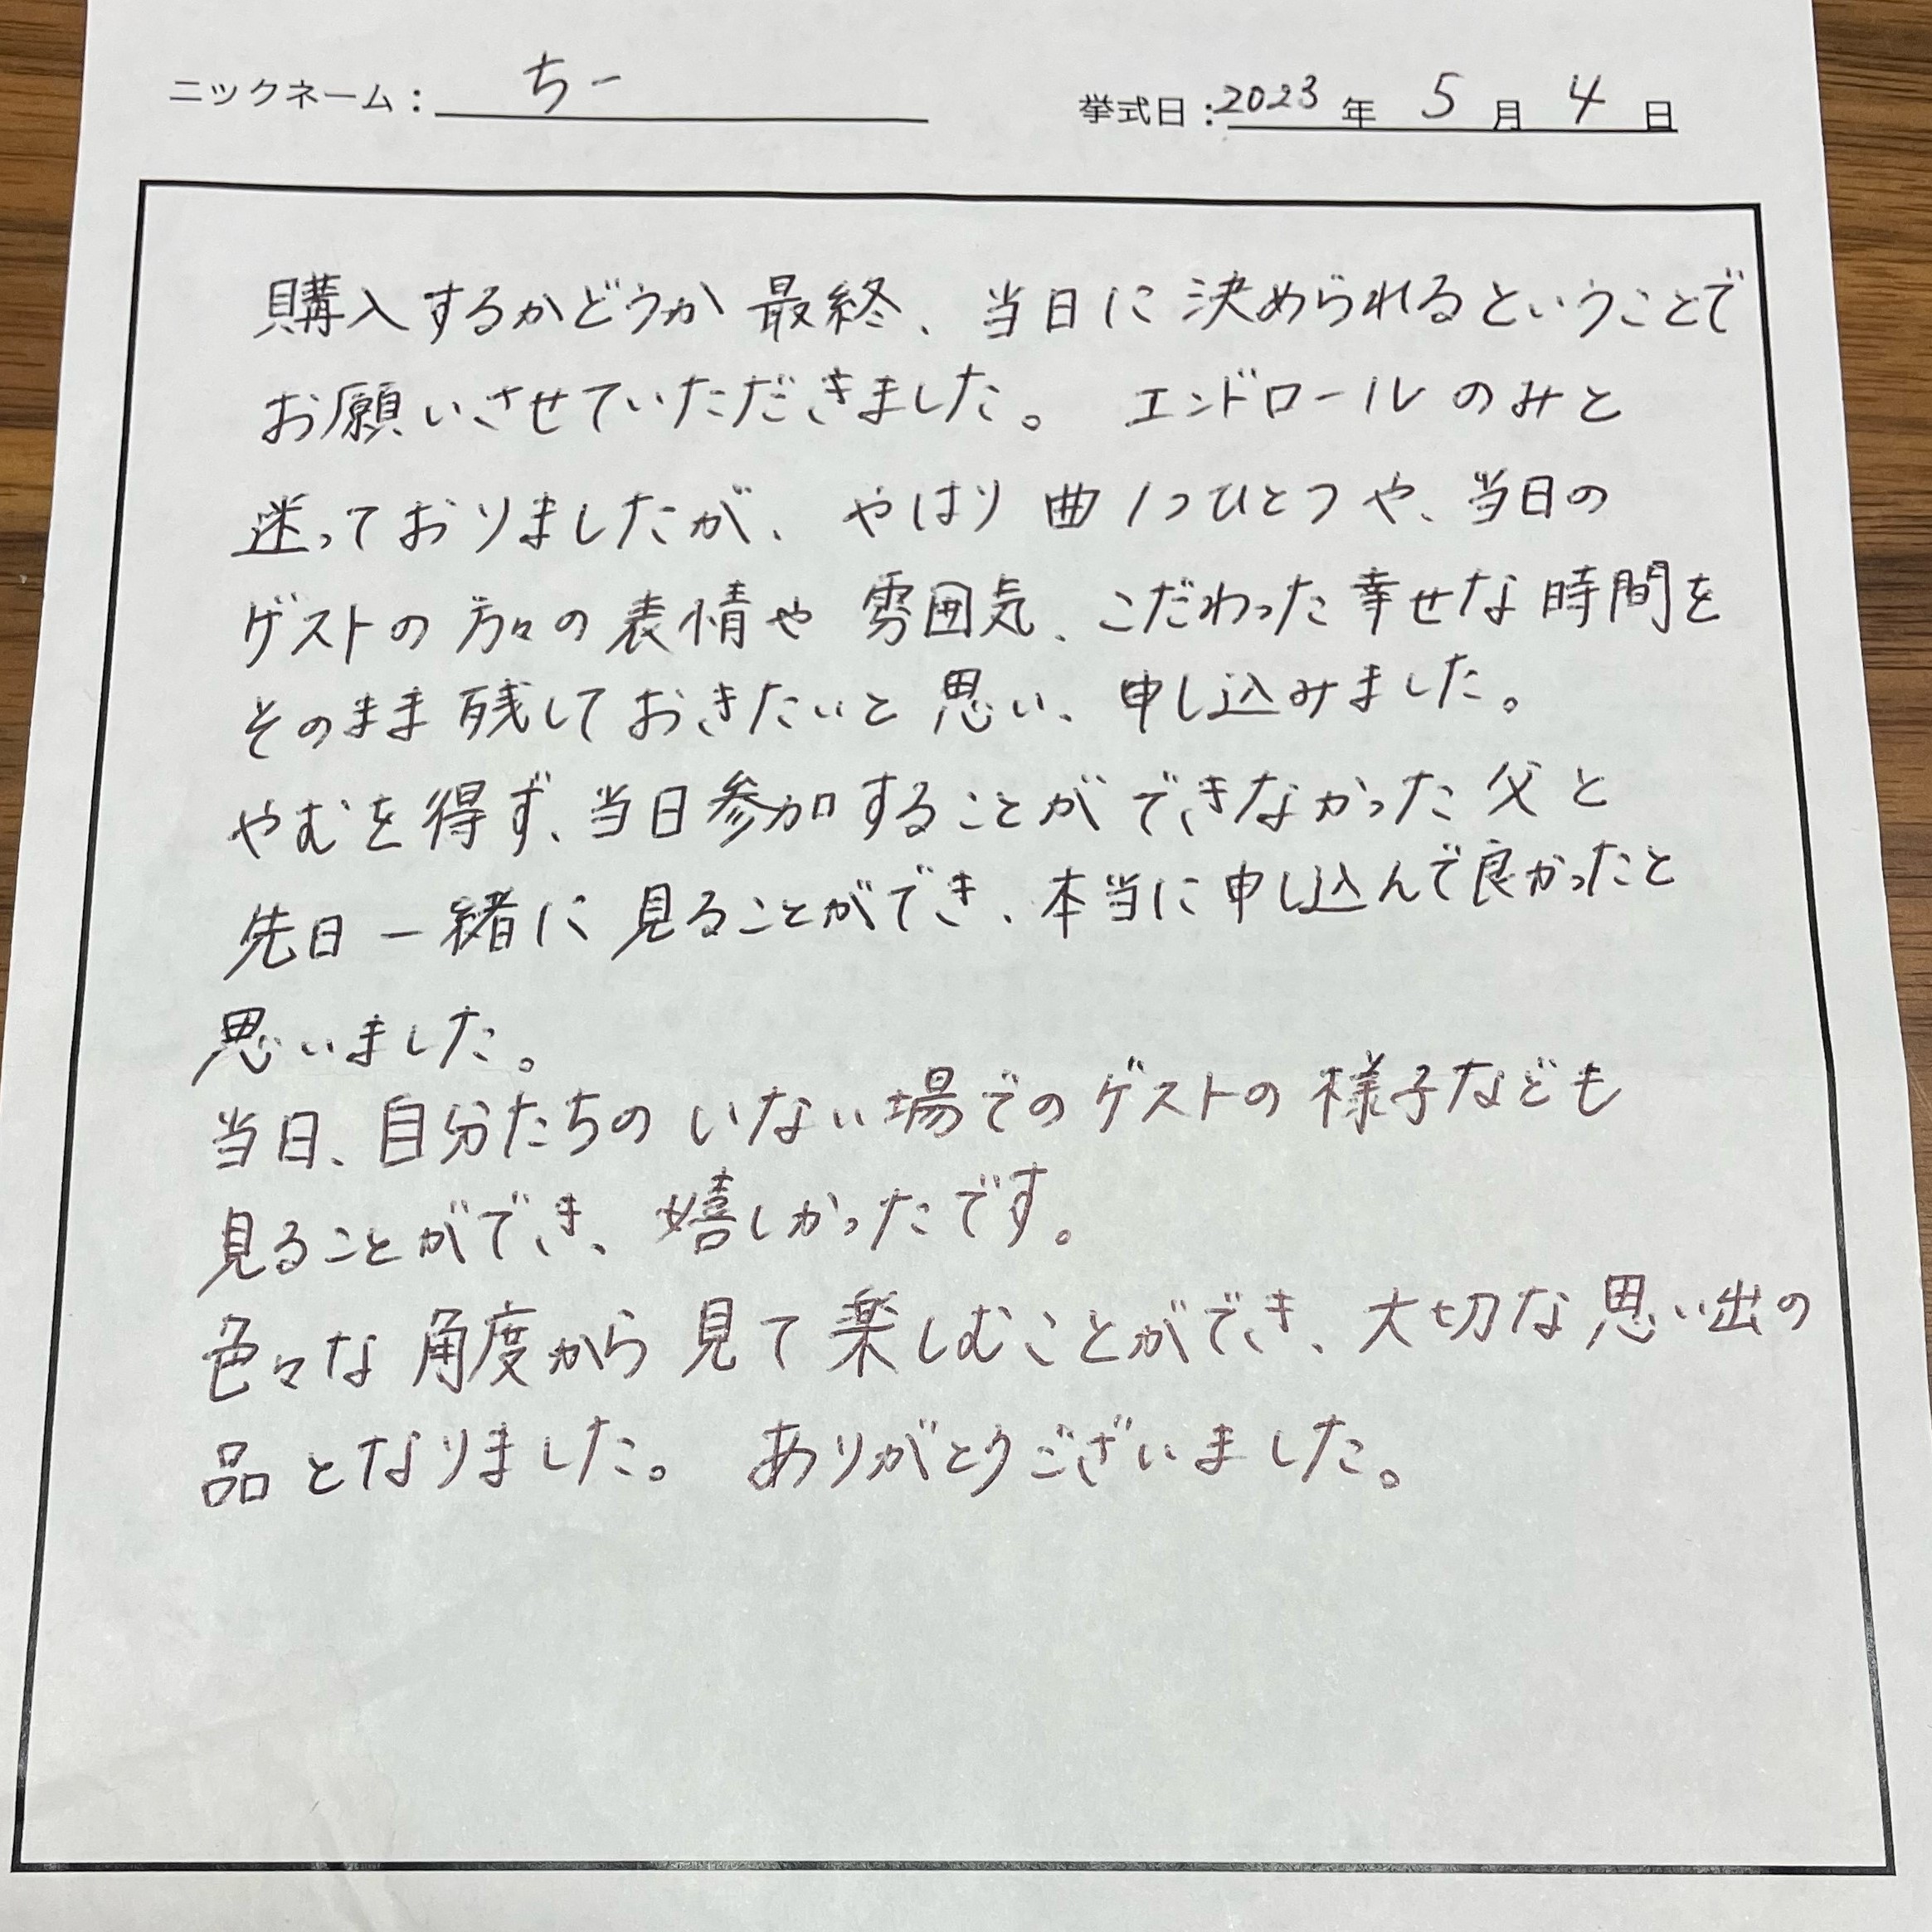 ニックネーム：ちー 挙式日：2023年5月4日
購入するかどうか最終、当日に決められるということで
お願いさせていただきました。 エンドロールのみと
迷っておりましたが、やはり曲1つひとつや、当日の
ゲストの方々の表情や雰囲気、こだわった幸せな時間を
そのまま残しておきたいと思い、申し込みました。
やむを得ず、当日参加することができなかった父と
先日一緒に見ることができ、本当に申し込んで良かったと
思いました。
当日、自分たちのいない場でのゲストの様子なども
見ることができ、嬉しかったです。
色々な角度から見て楽しむことができ、大切な思い出の
品となりました。 ありがとうございました。